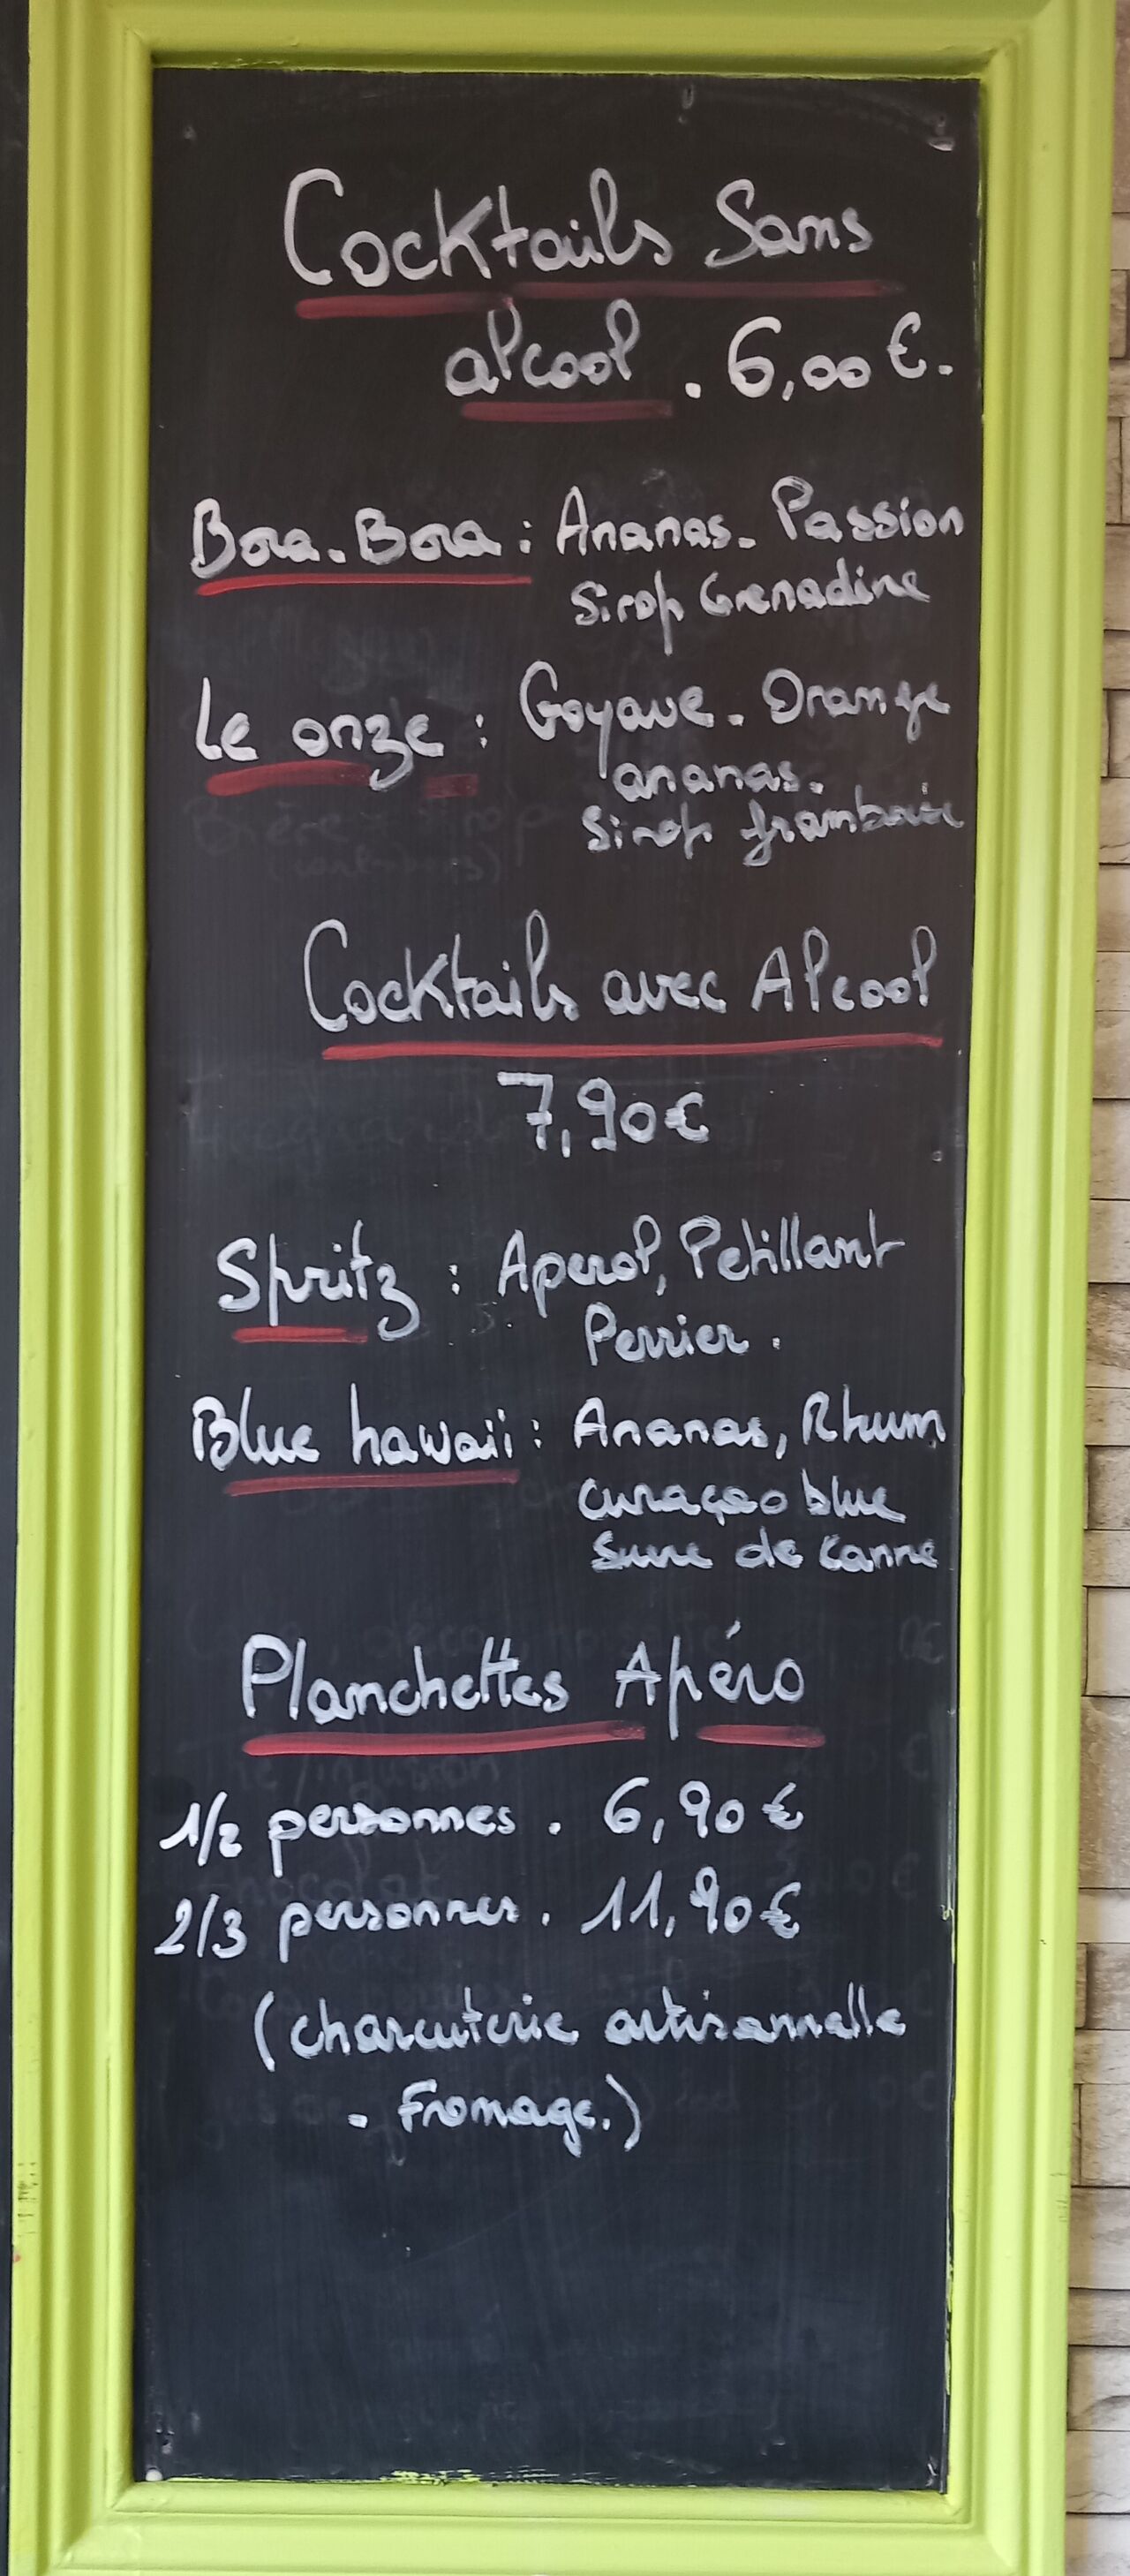 Cocktails Sans
alcool. 6,00€.
Bora-Bora: Ananas. Passion
Sirop Grenadine
Le onze: Goyave. Orange
ananas.
Sirop framboise
Cocktails avec Alcool
7,90€
Spritz: Aperol, Petillant
Perrier.
Blue hawaii: Ananas, Rhum
curaçao blue
Sucre de canne
Planchettes Apéro
1/2 personnes. 6,90€
2/3 personnes. 11,90€
(charcuterie artisannalle
- Fromage.)